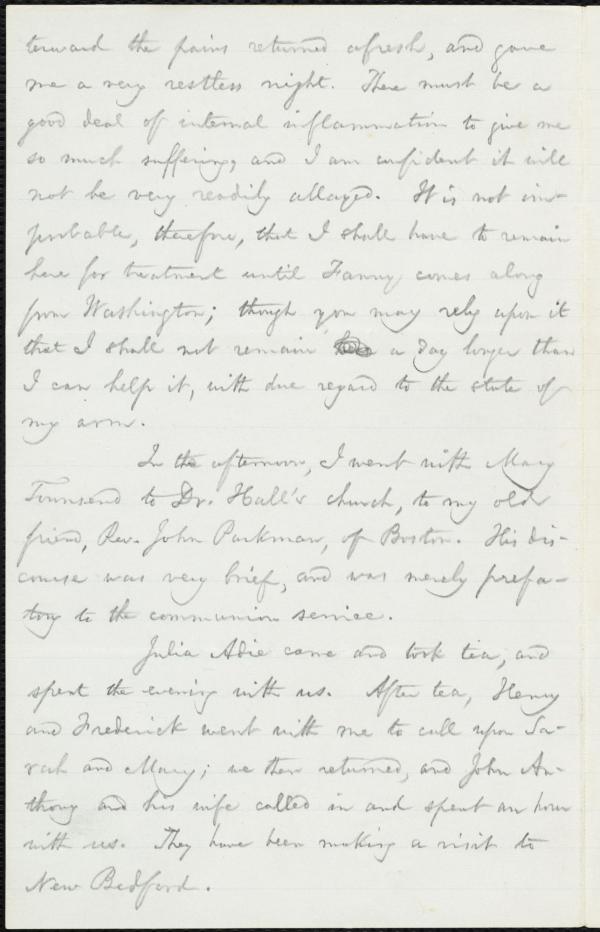 terward the pains returned afresh, and gave
me a very restless night. There must be a
good deal of internal inflammation to give me
so much suffering, and I am confident it will
not be very readily allayed. It is not im-
probable, therefore, that I shall have to remain
here for treatment until Fanny comes along
from Washington; though you may rely upon it
that I shall not remain a day longer than
I can help it, with due regard to the state of
my arm.
In the afternoon, I went with Mary
Townsend to Dr. Hall's church, to my old
friend, Rev. John Parkman, of Boston. His dis-
course was very brief, and was merely prefa-
tory to the communion service.
Julia Adie came and took tea, and
spent the evening with us. After tea, Henry
and Frederick went with me to call upon Sa-
rah and Mary; we then returned, and John An-
thony and his wife called in and spent an hour
with us. They have been making a visit to
New Bedford.